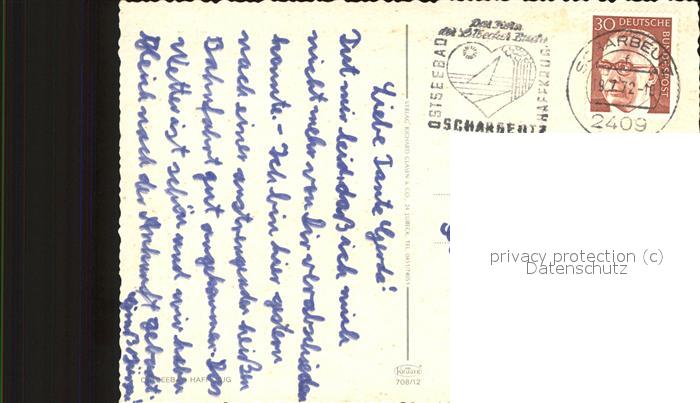 Liebe Tante Gerda!
Tut mir leid, daß ich mich
nicht mehr von Dir verabschieden
konnte. - Ich bin hier gestern
nach einer anstrengenden heißen
Bahnfahrt gut angekommen. Das
Wetter ist schön und wir haben
gleich nach der Ankunft gebadet.
Gruß
VERLAG RICHARD GLASEN & CO. 24 LÜBECK, TEL.
KRÜGER
708/12
OSTSEEBAD HAFFKRUG
Das Herz
der Lübecker Bucht
OSTSEEBAD
SCHARBEUTZ
HAFFKRUG
SCHARBEUTZ
2409
30 DEUTSCHE
BUNDESPOST
privacy protection (c)
Datenschutz